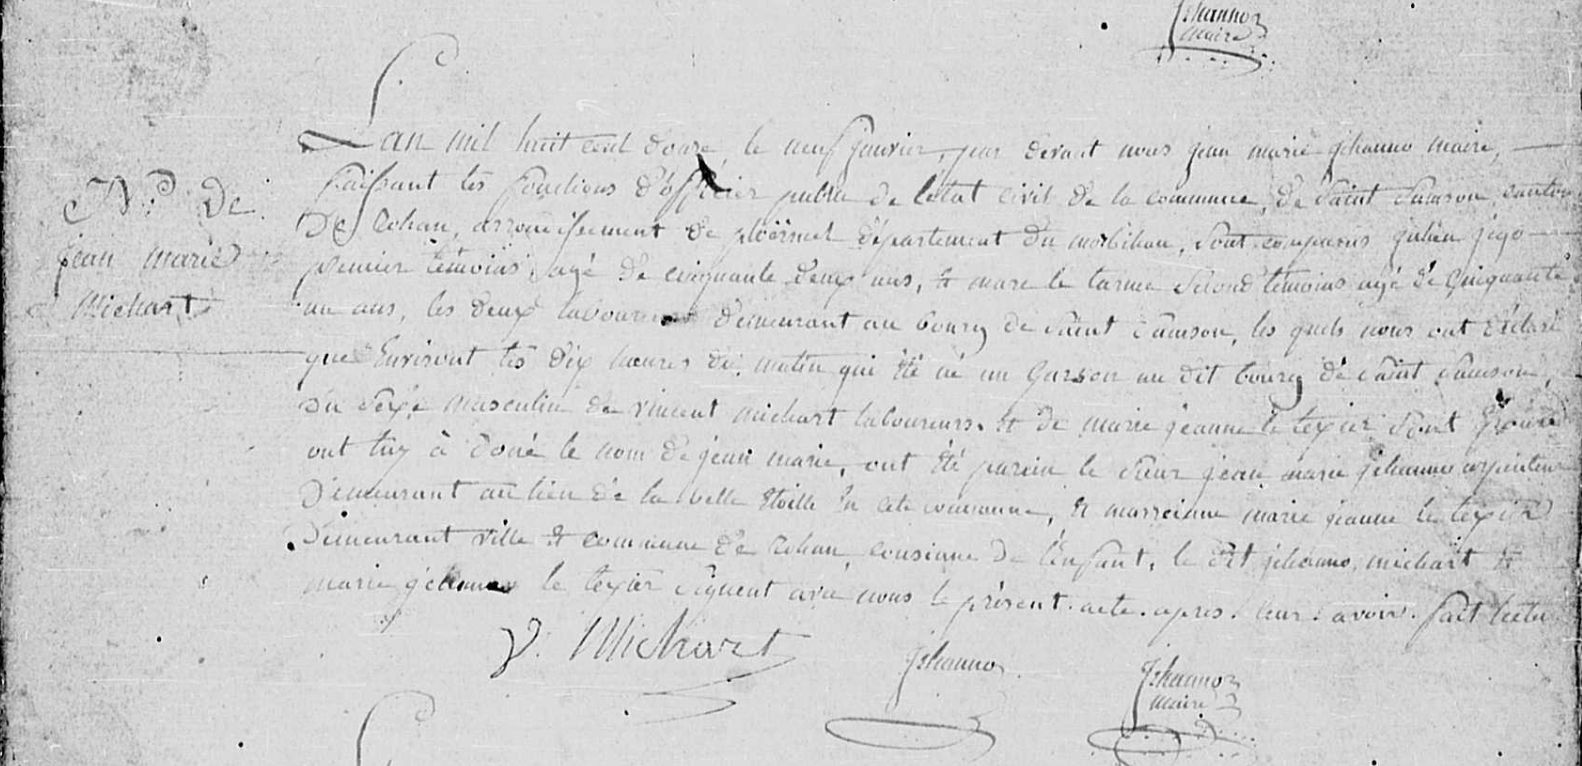 Jehanno
maire
Lan mil huit cent douze, le neuf janvier, par devant nous jean marie jehanno maire,
faissant les fonctions d'officier public de letat civil de la commune, de Saint Samson, canton
De Rohan, arrondissement de ploërmel département du morbihan, sont comparus julien jigo
N.º De
jean marie
Michart
premier témoins agé de cinquante deux ans, & marc le tarnec second témoins agé de cinquante
un ans, les deux laboureurs demeurant au bourg de saint samson, les quels nous ont déclaré
que Environt les dix heures du matin qui été né un garson au dit bourg de saint samson,
du sexe masculin de vincent michart laboureurs, et de marie jeanne le texier sont épouse
ont luy à doné le nom de jean marie, ont été parein le sieur jean marie jehanno arpenteur
Demeurant au lieu de la belle étoille en cete commune, & marreinne marie jeanne le texier
Demeurant ville et commune de Rohan, cousinne de l'enfant, le dit jehanno, michart &
marie jehanne le texier signent avec nous le présent acte apres leur avoir fait lectu
V. Michart
Jehanno
Jehanno
maire